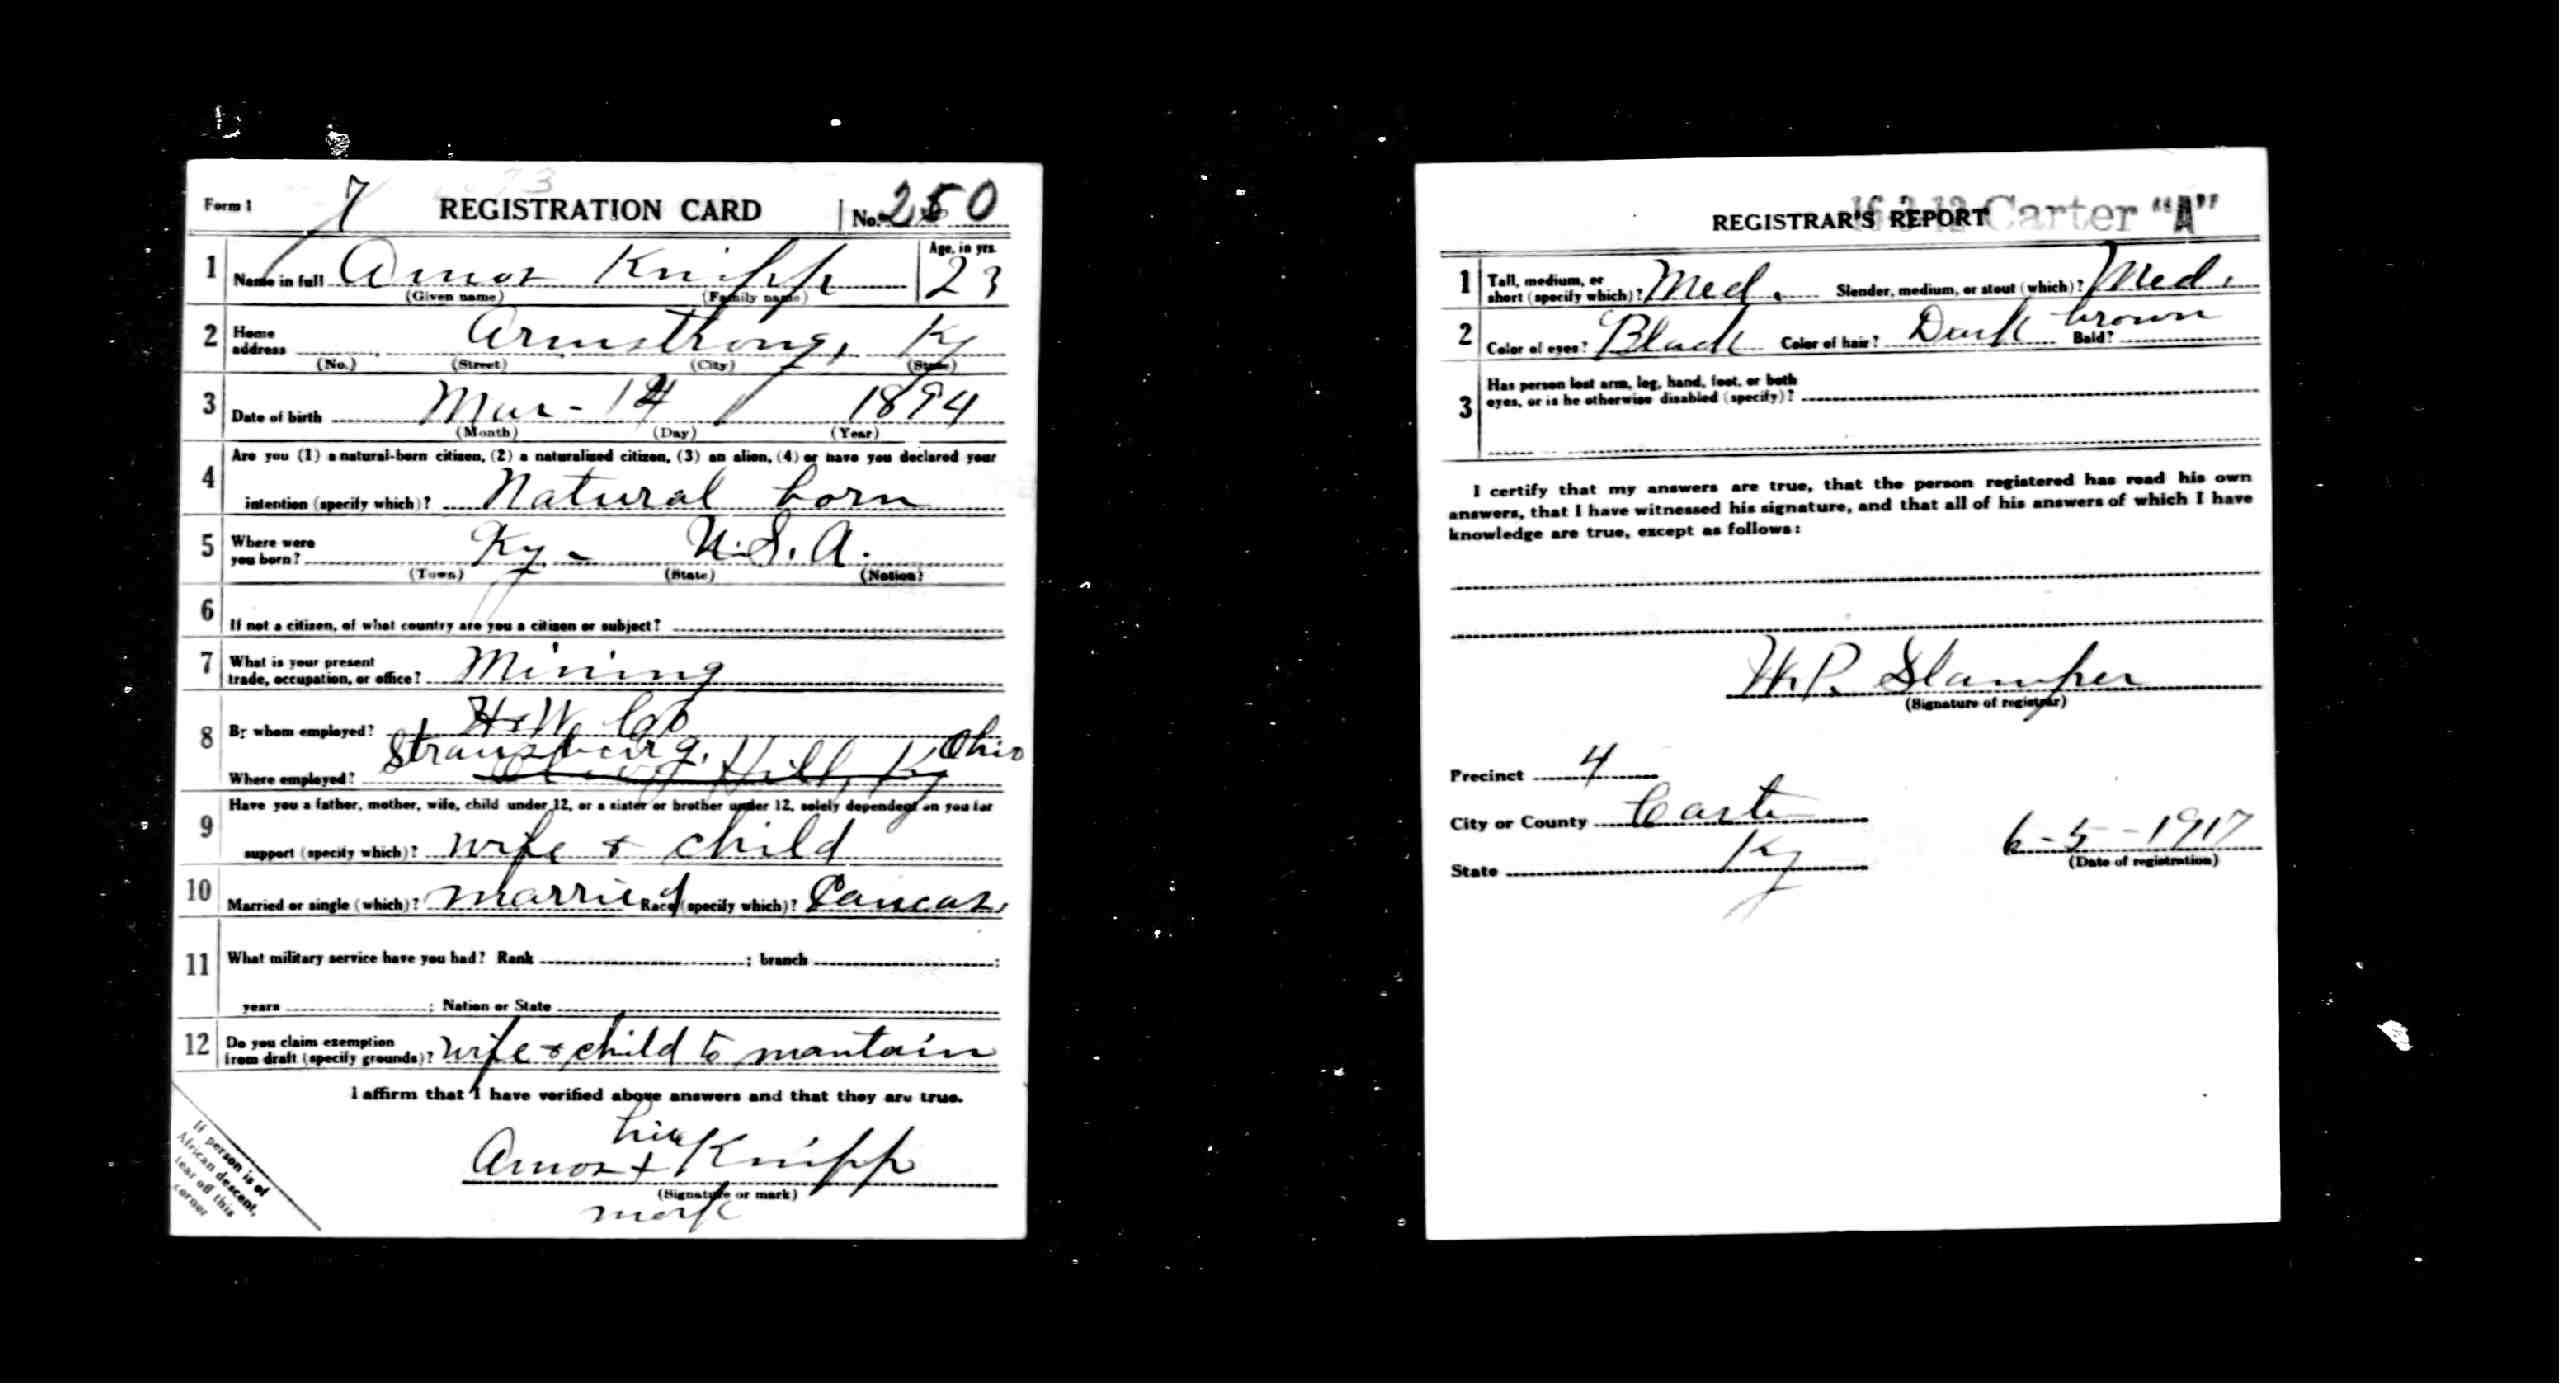 Form 1 7 REGISTRATION CARD No. 250
1 Name in full Amos Knipp Age, in yrs. 23
(Given name) (Family name)
2 Home address Armstrong, Ky
(No.) (Street) (City) (State)
3 Date of birth Mar - 14 1894
(Month) (Day) (Year)
4 Are you (1) a natural-born citizen, (2) a naturalized citizen, (3) an alien, (4) or have you declared your
intention (specify which)? Natural born
5 Where were you born? Ky - U.S.A.
(Town) (State) (Nation)
6 If not a citizen, of what country are you a citizen or subject?
7 What is your present
trade, occupation, or office? Mining
8 By whom employed? H & W. Co
Strausburg, Ohio
Where employed? Hill, Ky
9 Have you a father, mother, wife, child under 12, or a sister or brother under 12, solely dependent on you for
support (specify which)? wife & child
10 Married or single (which)? married Race (specify which)? Caucas.
11 What military service have you had? Rank ; branch ;
years ; Nation or State
12 Do you claim exemption
from draft (specify grounds)? wife & child to mantain
I affirm that I have verified above answers and that they are true.
his
Amos + Knipp
(Signature or mark)
mark
If person is of
African descent,
tear off this
corner
REGISTRAR'S REPORT 16-3-12 Carter "A"
1 Tall, medium, or
short (specify which)? Med. Slender, medium, or stout (which)? Med.
2 Color of eyes? Black Color of hair? Dark brown Bald?
3 Has person lost arm, leg, hand, foot, or both
eyes, or is he otherwise disabled (specify)?
I certify that my answers are true, that the person registered has read his own
answers, that I have witnessed his signature, and that all of his answers of which I have
knowledge are true, except as follows:
W.P. Stamper
(Signature of registrar)
Precinct 4
City or County Carter
State Ky
6-5-1917
(Date of registration)